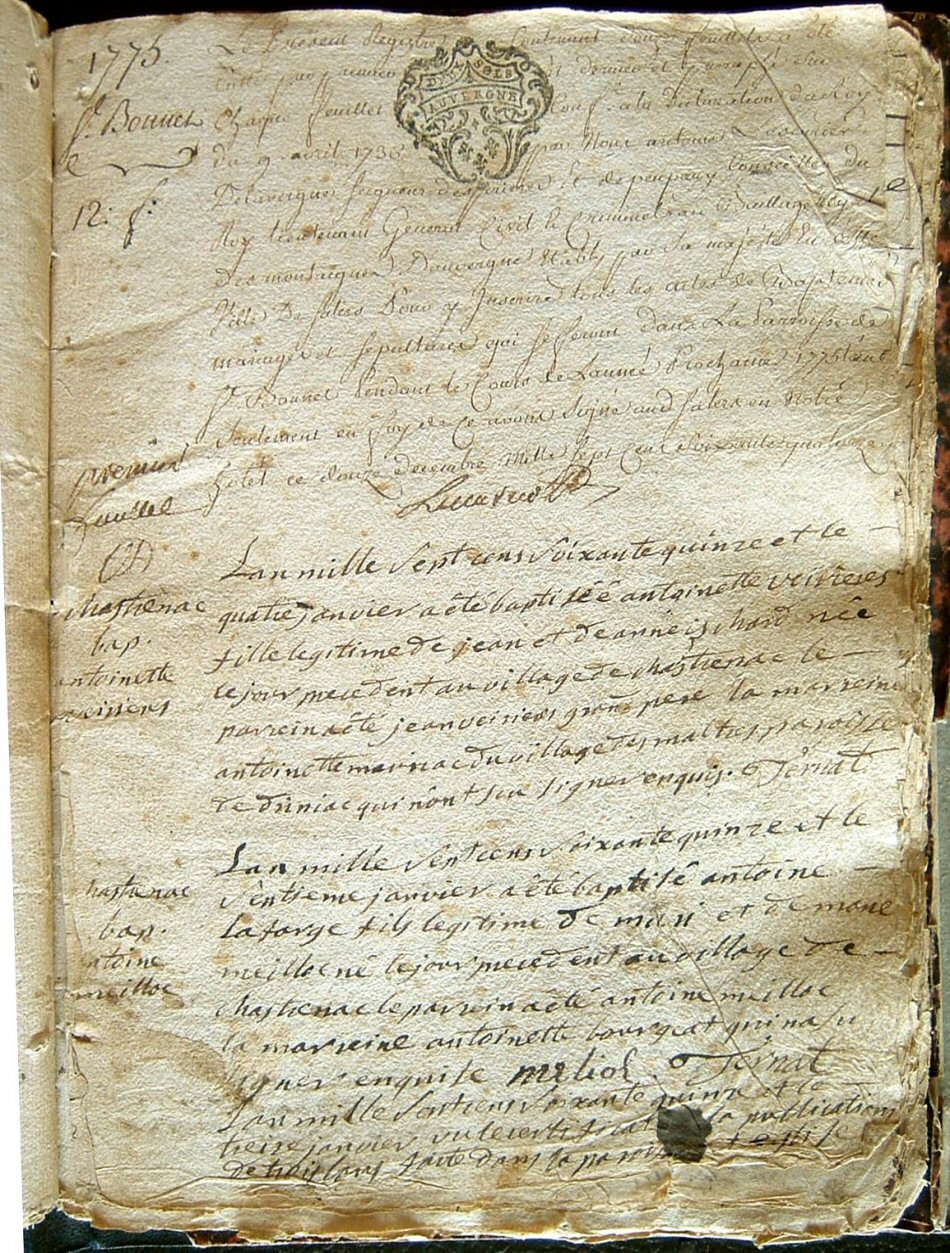 1775
St Bonnet
12: f:
DEUX SOLS
AUVERGNE
Le Present Registre Contenant douze feuillets a été
Chaque feuillet Conft a la declaration du Roy
du 9. avril 1736 par Nous antoine
Delavergne Seigneur et de Conseiller du
Roy Lieutenant General Civil & Criminel au Bailliage
Des montaignes D'auvergne Etably par Sa majesté En cette
Ville De Salers Pour y Inscrire tous les actes de Baptemes
mariages et sepultures qui se feront dans La Parroisse de
St Bonnet Pendant le Cours de L'année Prochaine 1775
Seulement en foy de Ce avons Signé aud Salers en Notre
hotel ce douze decembre Mille Sept Cent Soixante quatorze
premier
Lan mille Sept cens Soixante quinze et le
quatre janvier a été baptisée antoinette veirieres
fille legitime de jean et de anne ischard née
le jour precedent au village de chastrenac le
parrein a été jean veirieres grand pere la marreine
antoinette meiniac du village des maltres paroisse
de druniac qui n'ont seu signer enquis. Ternat
chastrenac
bap.
antoinette
veirieres
Lan mille Sept cens Soixante quinze et le
Septieme janvier a été baptisé antoine
Lafarge fils legitime de et de
meilloc né le jour precedent au village de
chastrenac le parrein a été antoine meilloc
la marreine antoinette bourgeat qui na su
signer enquise meliol. Ternat
chastrenac
bap.
antoine
meilloc
Lan mille Sept cens Soixante quinze et le
treize janvier vu le certificat de la publication
de trois bans faite dans la eglise